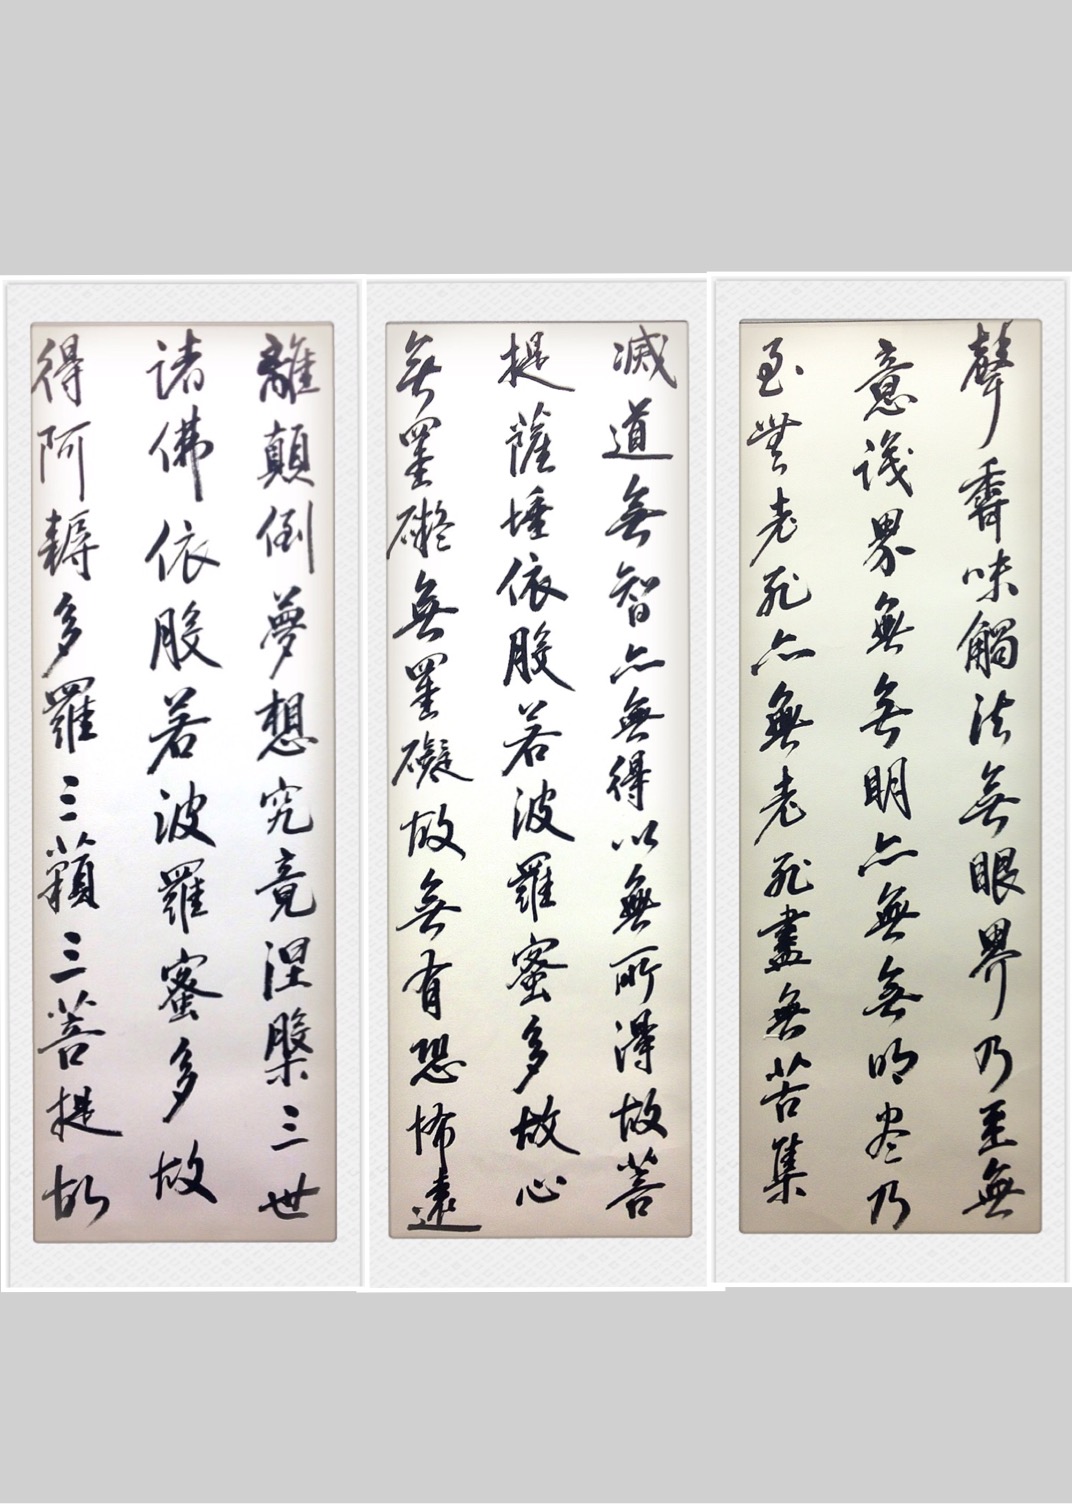 聲香味觸法無眼界乃至無
意識界無無明亦無無明盡乃
至無老死亦無老死盡無苦集
滅道無智亦無得以無所得故菩
提薩埵依般若波羅蜜多故心
無罣礙無罣礙故無有恐怖遠
離顛倒夢想究竟涅槃三世
諸佛依般若波羅蜜多故
得阿耨多羅三藐三菩提故